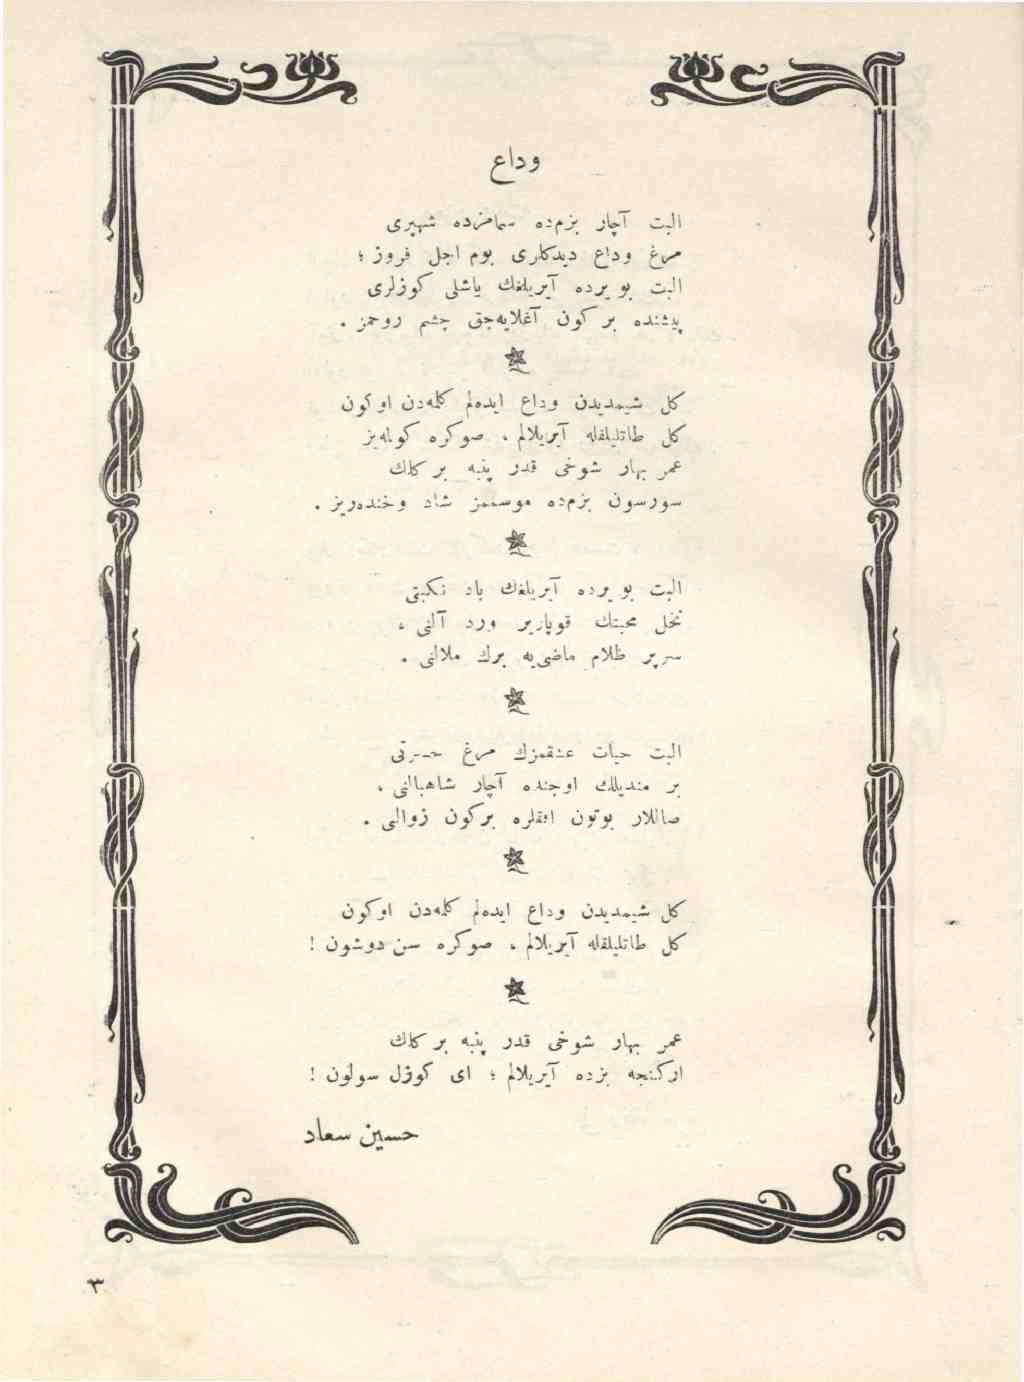 وداع
البت آچار بزم‌ده سمامزده شهپری
مرغ وداع دیدکلری بوم اجل فروز ؛
البت بو یرده آیریلغك یاشلی کوزلری
پیشنده بر کون آغلایه‌جق چشم روحمز .
کل شیمدیدن وداع ایده‌لم کلمه‌دن او کون
کل طاتلیلقله آیریلالم ، صوکره کوله‌یز
عمر بهار شوخی قدر پنبه بر کلك
سورسون بزم‌ده موسممز شاد وخنده‌ریز .
البت بو یرده آیریلغك باد نکبتی
نخل محبتك قوپاریر ورد آلنی ،
سرپر ظلام ماضی‌یه برك ملالنی .
البت حیات عشقمزك مرغ حسرتی
بر مندیلك اوجنده آچار شاهبالنی ،
صاللار بوتون افقلره برکون زوالی .
کل شیمدیدن وداع ایده‌لم کلمه‌دن او کون
کل طاتلیلقله آیریلالم ، صوکره سن دوشون !
عمر بهار شوخی قدر پنبه بر کلك
ارکنجه بزده آیریلالم ؛ ای کوزل سولون !
حسین سعاد
۳